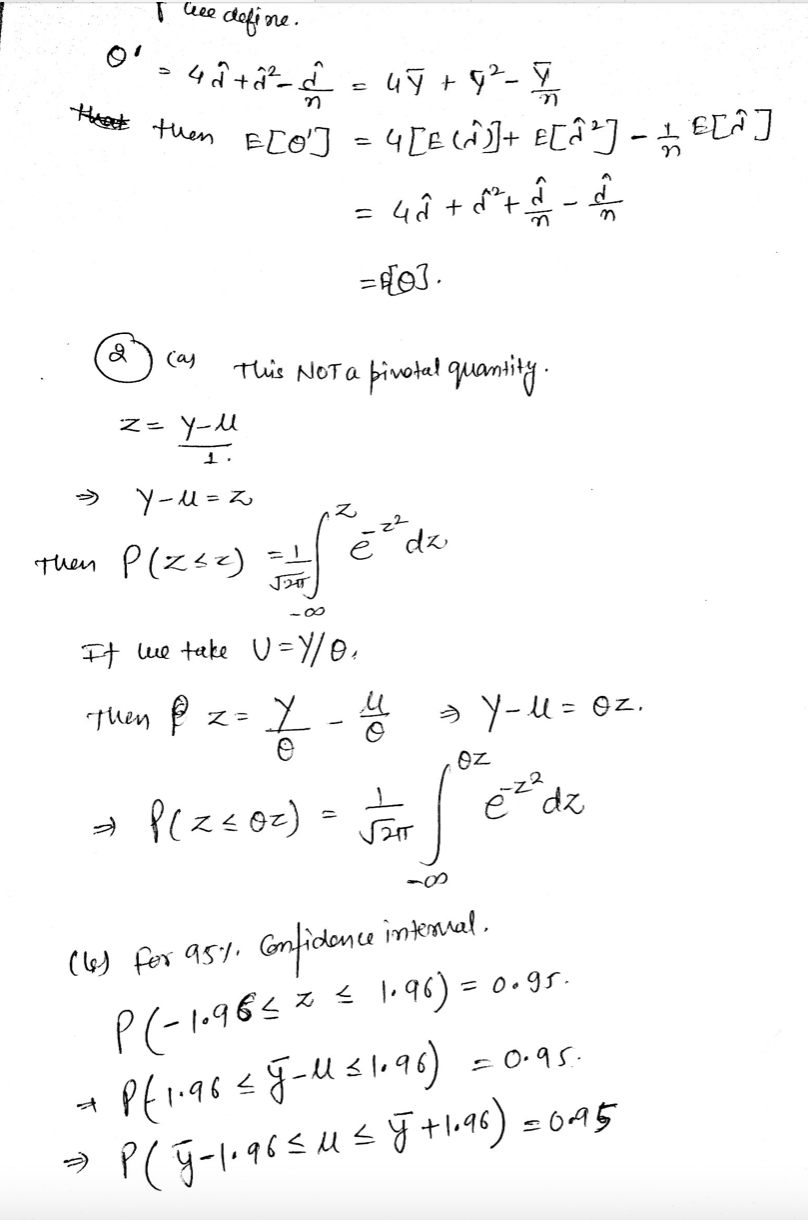 we define.
θ' = 4λ̂ + λ̂² - λ̂/n = 4ȳ + ȳ² - ȳ/n
then E[θ'] = 4[E(λ̂)] + E[λ̂²] - 1/n E[λ̂]
= 4λ̂ + λ̂² + λ̂/n - λ̂/n
= E[θ].
② (a) This NOT a pivotal quantity.
z = (Y-μ)/1.
⇒ Y-μ = z
Then P(Z≤z) = 1/√2π ∫_{-∞}^{z} e^{-z²} dz
If we take U = Y/θ,
Then z = Y/θ - μ/θ ⇒ Y-μ = θz.
⇒ P(Z≤θz) = 1/√2π ∫_{-∞}^{θz} e^{-z²} dz
(b) for 95% Confidence interval.
P(-1.96 ≤ z ≤ 1.96) = 0.95.
⇒ P(-1.96 ≤ ȳ-μ ≤ 1.96) = 0.95.
⇒ P(ȳ-1.96 ≤ μ ≤ ȳ+1.96) = 0.95